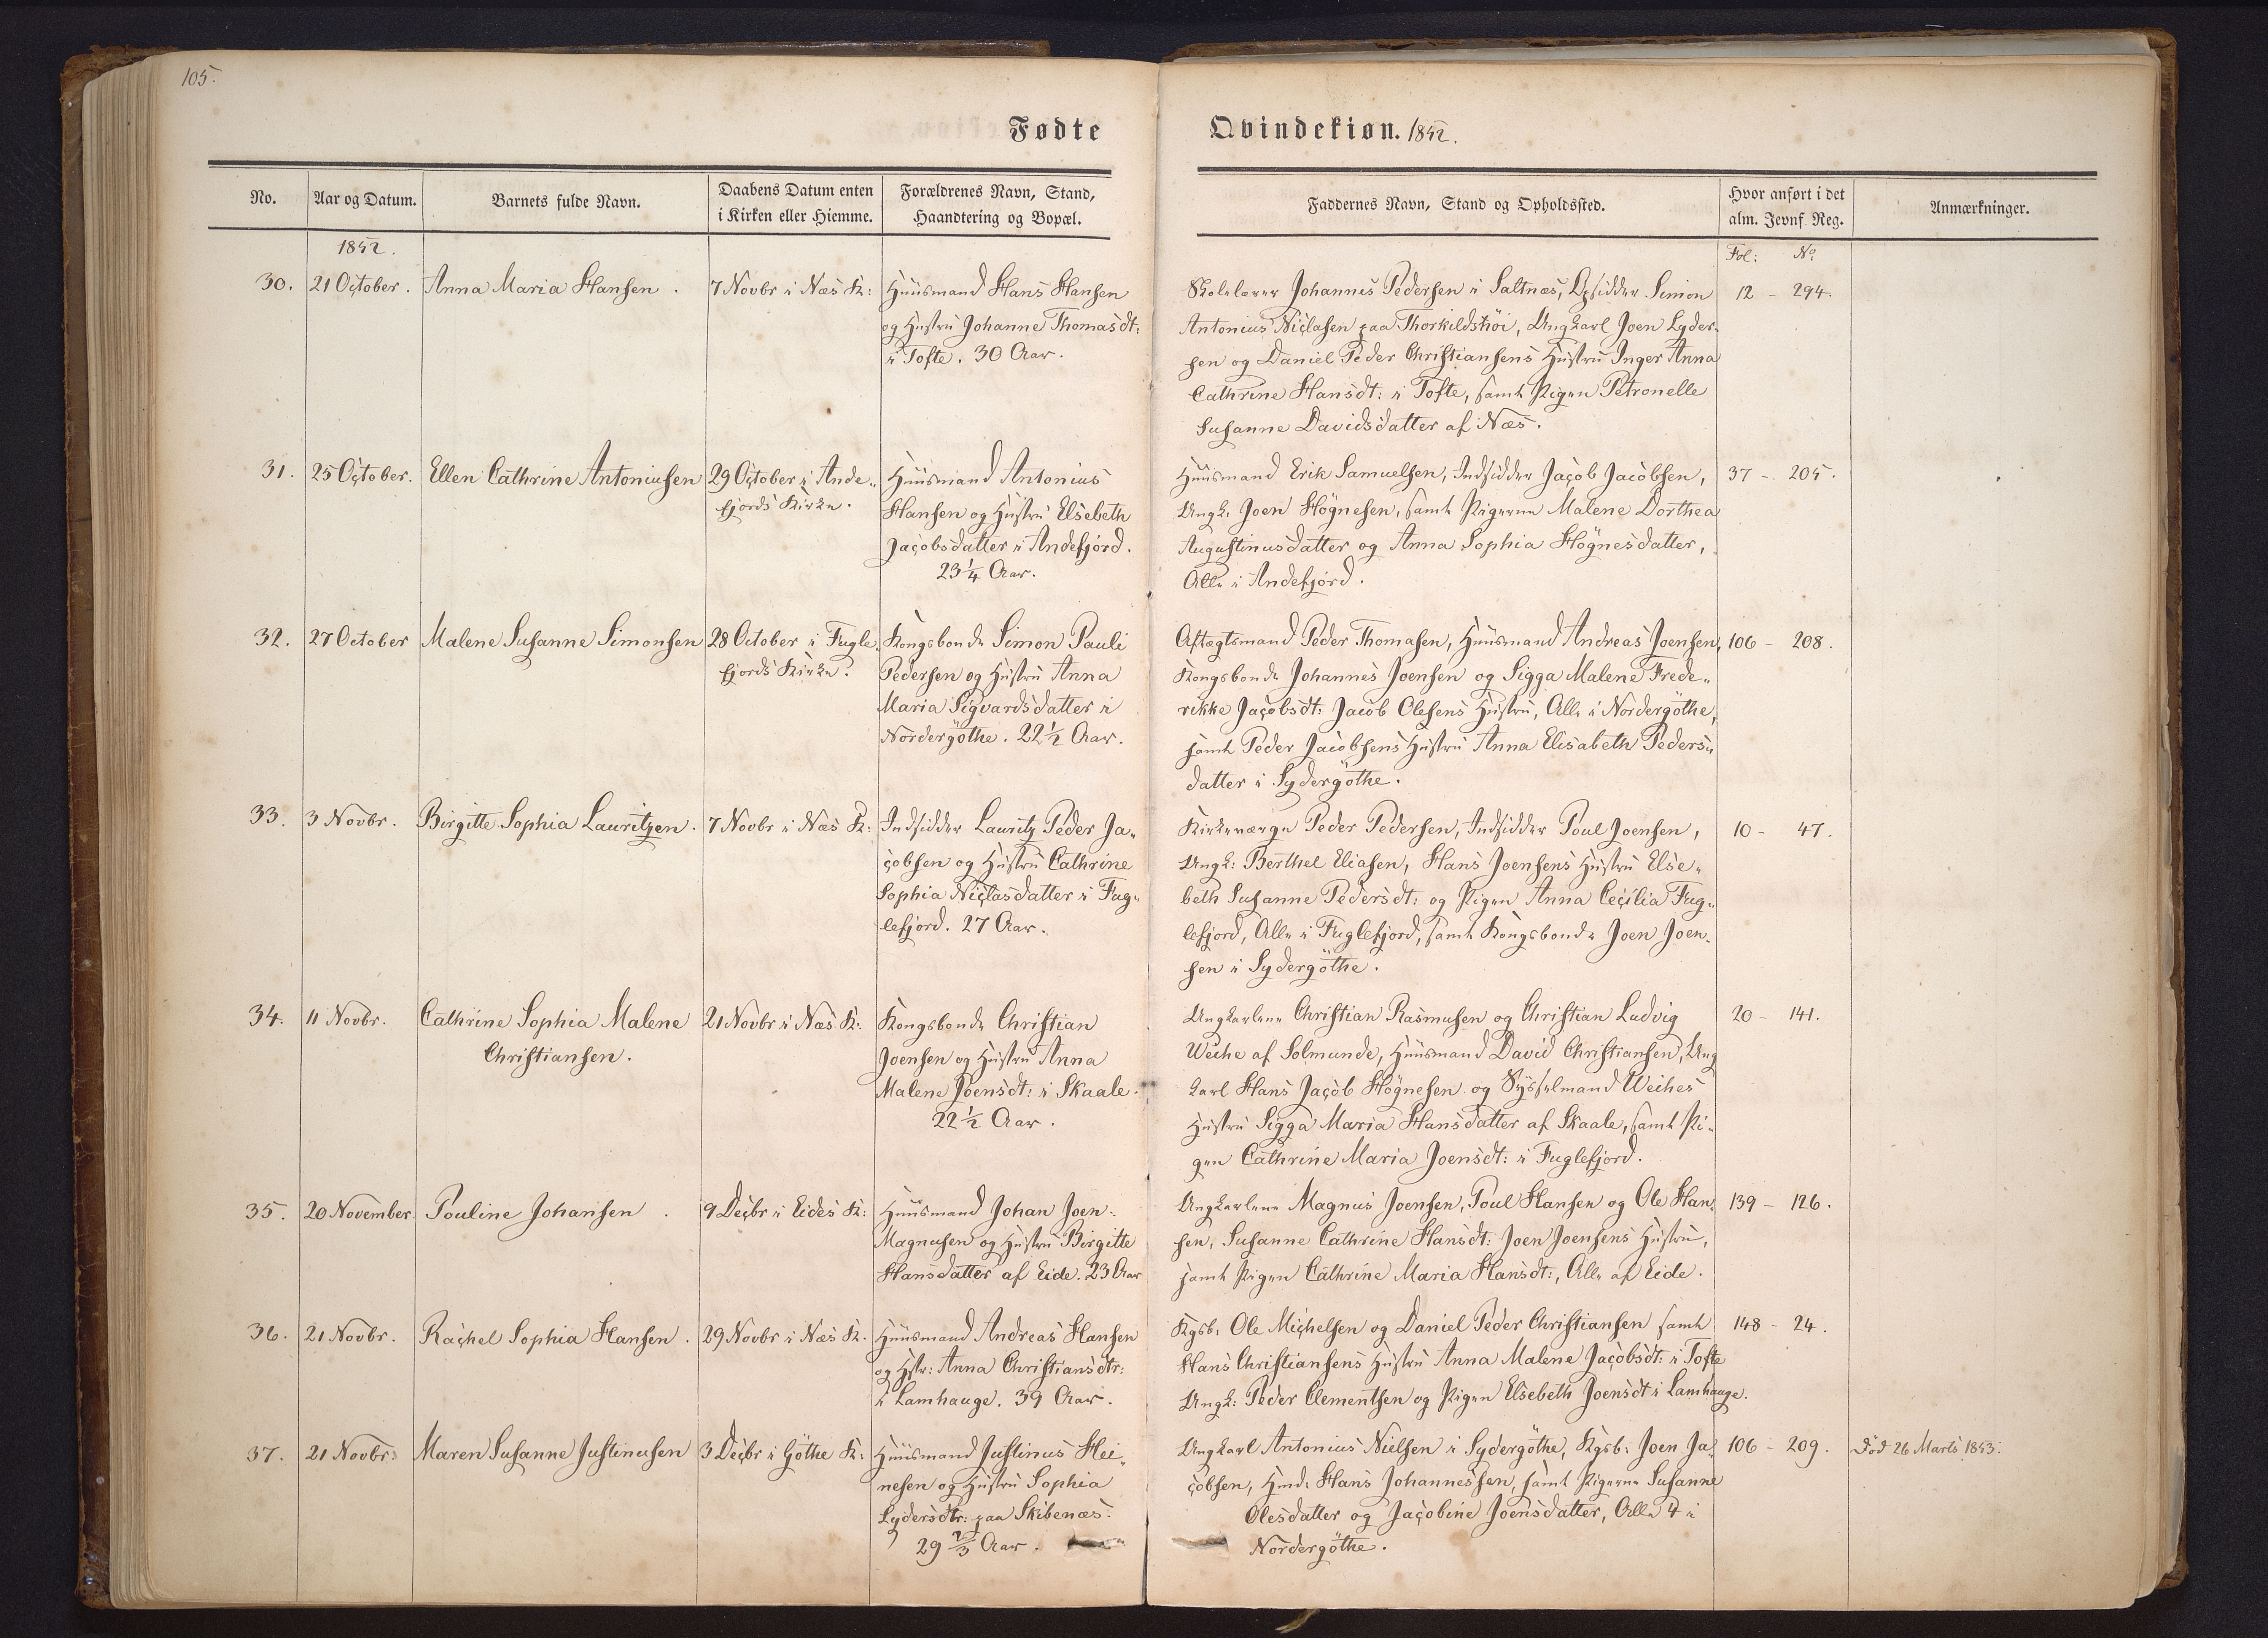 105.
Fødte
Qvindekiøn. 1852.
No.
Aar og Datum.
Barnets fulde Navn.
Daabens Datum enten
i Kirken eller Hiemme.
Forældrenes Navn, Stand,
Haandtering og Bopæl.
Faddernes Navn, Stand og Opholdssted.
Hvor anført i det
alm. Jevnf. Reg.
Anmærkninger.
1852.
Fol: No
30. 21 October. Anna Maria Hansen. 7 Novbr i Næs K:
Huusmand Hans Hansen
og Hustru Johanne Thomasdt:
i Tofte. 30 Aar.
Skolelærer Johannes Pedersen i Saltnæs, Opsidder Simon
Antonius Niclasen paa Thorkildshöi, Ungkarl Joen Lyder-
sen og Daniel Peder Christiansens Hustru Inger Anna
Cathrine Hansdt: i Tofte, samt Pigen Petronelle
Susanne Davidsdatter af Næs.
12 - 294.
31. 25 October. Ellen Cathrine Antoniusen
29 October i Ande-
fjords Kirke.
Huusmand Antonius
Hansen og Hustru Elsebeth
Jacobsdatter i Andefjord.
23 1/4 Aar.
Huusmand Erik Samuelsen, Indsidder Jacob Jacobsen,
Ungk: Joen Högnesen, samt Pigerne Malene Dorthea
Augustinusdatter og Anna Sophia Högnesdatter,
Alle i Andefjord.
37 - 205.
32. 27 October Malene Susanne Simonsen
28 October i Fugle-
fjords Kirke.
Kongsbonde Simon Pauli
Pedersen og Hustru Anna
Maria Sigvardsdatter i
Nordergöthe. 22 1/2 Aar.
Aftægtsmand Peder Thomasen, Huusmand Andreas Joensen,
Kongsbonde Johannes Joensen og Sigga Malene Frede-
rikke Jacobsdt: Jacob Olesens Hustru, Alle i Nordergöthe,
samt Peder Jacobsens Hustru Anna Elisabeth Peders-
datter i Sydergöthe.
106 - 208.
33. 3 Novbr. Birgitte Sophia Lauritzen. 7 Novbr i Næs K:
Indsidder Lauritz Peder Ja-
cobsen og Hustru Cathrine
Sophia Niclasdatter i Fug-
lefjord. 27 Aar.
Kirkeværge Peder Pedersen, Indsidder Poul Joensen,
Ungk: Berthel Eliasen, Hans Joensens Hustru Else-
beth Susanne Pedersdt: og Pigen Anna Cecilia Fug-
lefjord, Alle i Fuglefjord, samt Kongsbonde Joen Joen-
sen i Sydergöthe.
10 - 47.
34. 11 Novbr. Cathrine Sophia Malene
Christiansen.
21 Novbr i Næs K:
Kongsbonde Christian
Joensen og Hustru Anna
Malene Joensdt: i Skaale.
22 1/2 Aar.
Ungkarlene Christian Rasmusen og Christian Ludvig
Weihe af Solmunde, Huusmand David Christiansen, Ung
karl Hans Jacob Högnesen og Sysselmand Weihes
Hustru Sigga Maria Hansdatter af Skaale, samt Pi-
gen Cathrine Maria Joensdt: i Fuglefjord.
20 - 141.
35. 20 November Pouline Johansen. 9 Decbr i Eides K:
Huusmand Johan Joen-
Magnusen og Hustru Birgitte
Hansdatter af Eide. 23 Aar
Ungkarlene Magnus Joensen, Poul Hansen og Ole Han-
sen, Susanne Cathrine Hansdt: Joen Joensens Hustru,
samt Pigen Cathrine Maria Hansdt:, Alle af Eide.
139 - 126.
36. 21 Novbr. Rachel Sophia Hansen. 29 Novbr i Næs K.
Huusmand Andreas Hansen
og Hstr: Anna Christiansdtr:
i Lamhauge. 39 Aar.
Kgsb: Ole Michelsen og Daniel Peder Christiansen samt
Hans Christiansens Hustru Anna Malene Jacobsdt: i Tofte
Ungk: Peder Clementsen og Pigen Elsebeth Joensdt i Lamhauge.
148 - 24.
37. 21 Novbr. Maren Susanne Justinusen 3 Decbr i Göthe K:
Huusmand Justinus Hei-
nesen og Hustru Sophia
Lydersdtr: paa Skibenæs.
29 2/3 Aar.
Ungkarl Antonius Nielsen i Sydergöthe, Kgsb: Joen Ja-
cobsen, Hmd: Hans Johannessen, samt Pigerne Susanne
Olesdatter og Jacobine Joensdatter, Alle 4 i
Nordergöthe.
106 - 209.
Död 26 Marts 1853.